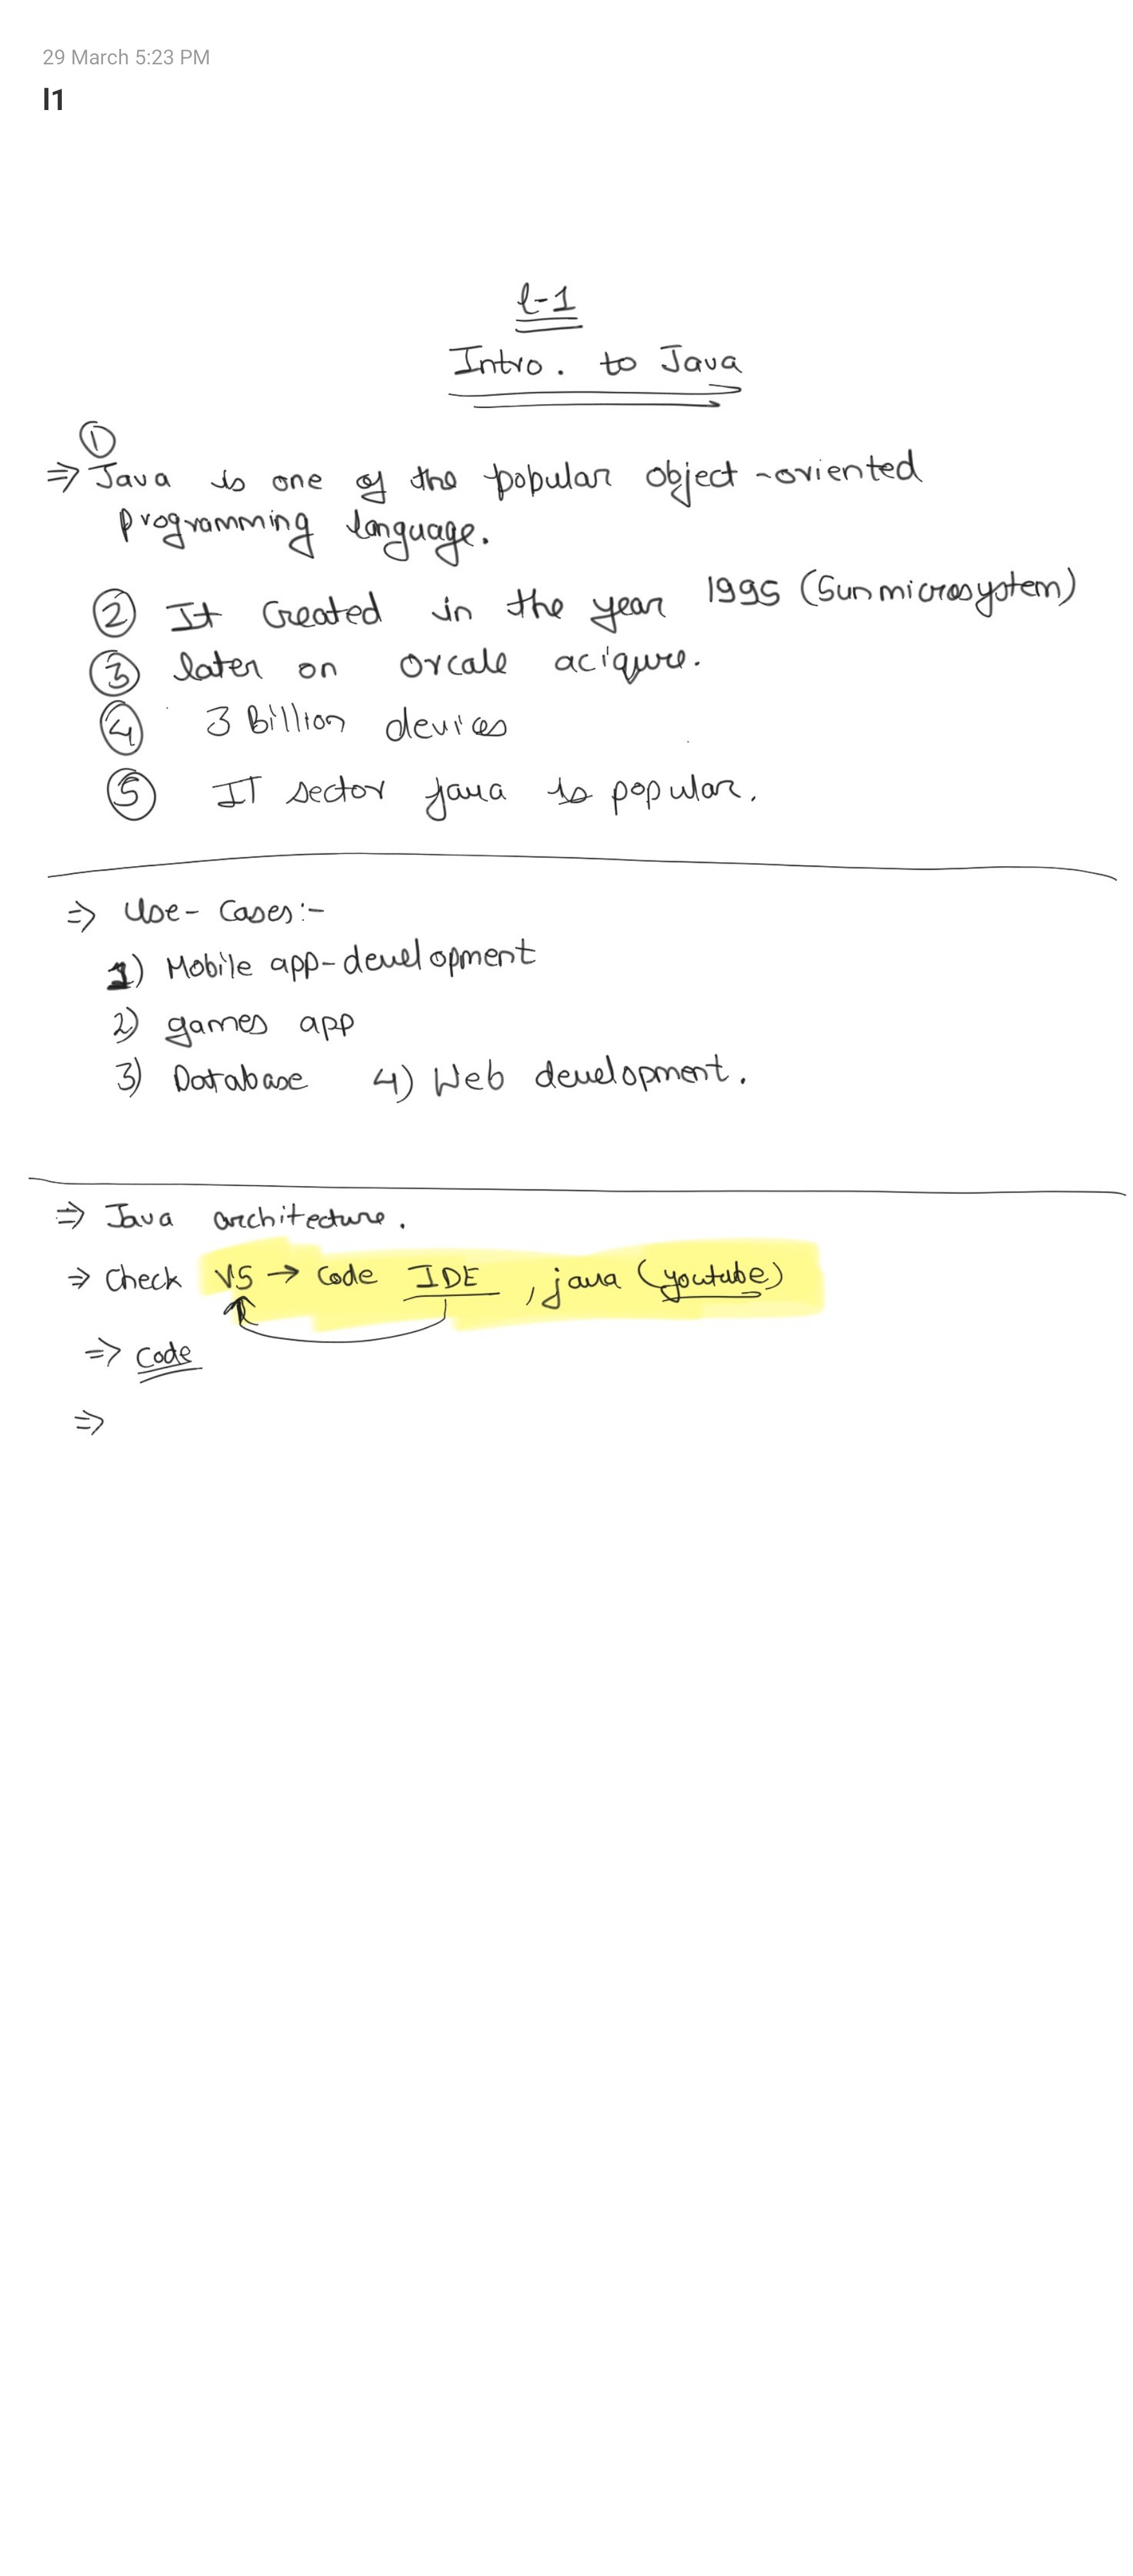 29 March 5:23 PM
l1
l-1
Intro. to Java
①
⇒ Java is one of the popular object-oriented
programming language.
② It Created in the year 1995 (Sunmicrosystem)
③ later on orcale aciqure.
④ 3 Billion devices
⑤ IT sector java is popular.
⇒ Use- Cases:-
1) Mobile app-development
2) games app
3) Database 4) Web development.
⇒ Java architecture.
⇒ Check VS → Code IDE , java (youtube)
⇒ Code
⇒